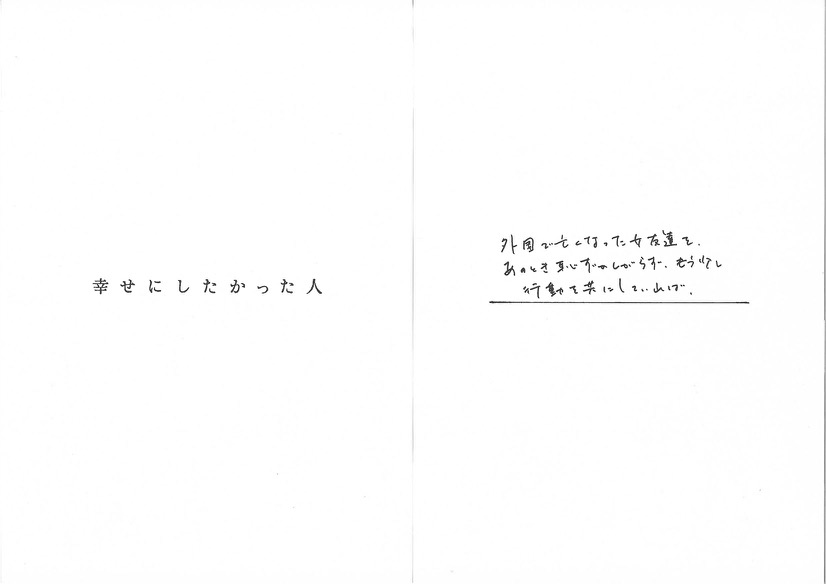 幸せにしたかった人
外国で亡くなった女友達を、
あのとき恥ずかしがらず、もう少し
行動を共にしていれば、